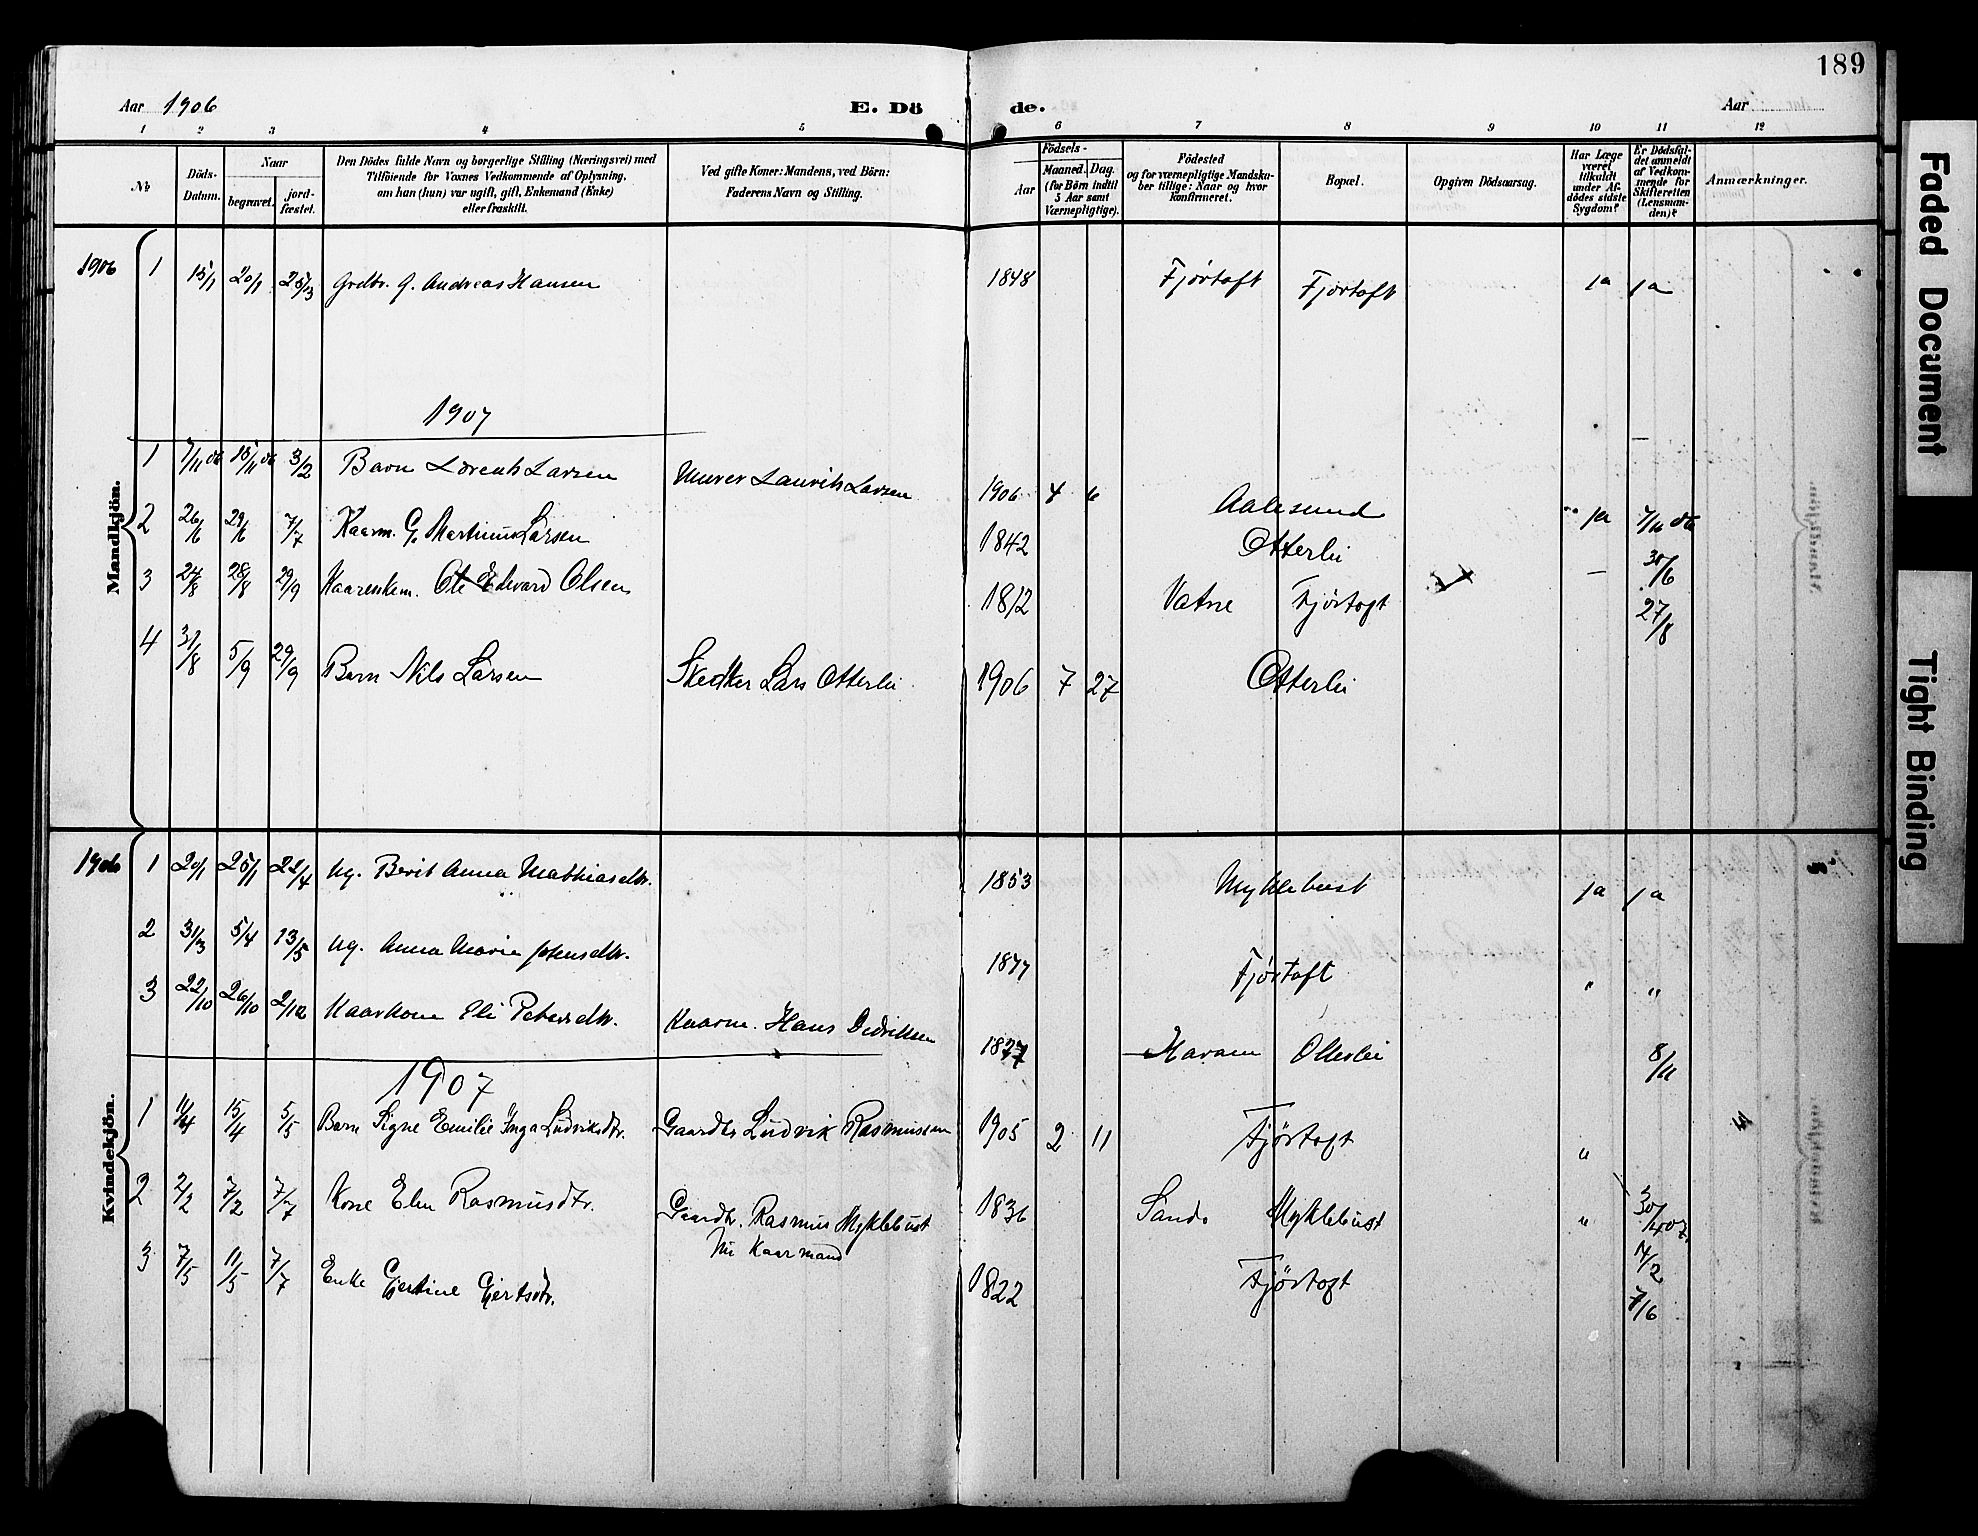 189
Aar 1906 E. Dö de. Aar
1 2 3 4 5 6 7 8 9 10 11 12
No
Döds-Datum.
Naar
begravet.
jord-fæstet.
Den Dödes fulde Navn og borgerlige Stilling (Næringsvei) med
Tilföiende for Voxnes Vedkommende af Oplysning,
om han (hun) var ugift, gift, Enkemand (Enke)
eller fraskilt.
Ved gifte Koner: Mandens, ved Börn:
Faderens Navn og Stilling.
Födsels-
Aar
Maaned. Dag.
(for Börn indtil
5 Aar samt
Værnepligtige).
Födested
og for værnepligtige Mandska-
ber tillige: Naar og hvor
konfirmeret.
Bopæl.
Opgiven Dödsaarsag.
Har Læge
været
tilkaldt
under Af-
dödes sidste
Sygdom?
Er Dödsfal-
det anmeldt
af Vedkom-
mende for
Skifteretten
(Lensman-
den)?
Anmærkninger.
Mandkjön.
1906 1 15/1 20/1 25/3 Grdbr. G. Andreas Hansen 1848 Fjørtoft Fjørtoft ja ja
1907
1 7/11 06 15/11 06 3/2 Barn Lorents Larsen Murer Laurits Larsen 1906 4 6 Aalesund ja 7/11 06
2 26/6 29/6 7/7 Kaarm. G. Martinus Larsen 1842 Otterlei 30/6
3 24/8 28/8 29/9 Kaarenkem. Ole Edevard Olsen 1812 Vatne Fjørtoft — 27/8
4 31/8 5/9 29/9 Barn Nils Larsen Lars Otterlei 1906 7 27 Otterlei
Kvindekjön.
1906 1 20/1 25/1 22/4 Ug. Berit Anna Mathiasdtr. 1853 Myklebust ja ja
2 31/3 5/4 13/5 Ug. Anna Marie 1877 Fjørtoft " "
3 22/10 26/10 Kaarkone Eli Petersdtr. Kaarm. Hans Didriksen Haram Otterlei 8/11
1907
1 11/4 15/4 5/5 Barn Signe Emilie Inga Ludviksdtr. Gaardbr Ludvik Rasmussen 1905 2 11 Fjørtoft "
2 2/2 7/2 7/7 Kone Elen Rasmusdtr. Gaardbr. Rasmus Myklebust 1836 Sands Myklebust " 30/4 07.
Nu Kaarmand
3 7/5 11/5 7/7 Enke Gjertine Gjertsdtr. 1822 Fjørtoft
7/6
Faded Document
Tight Binding